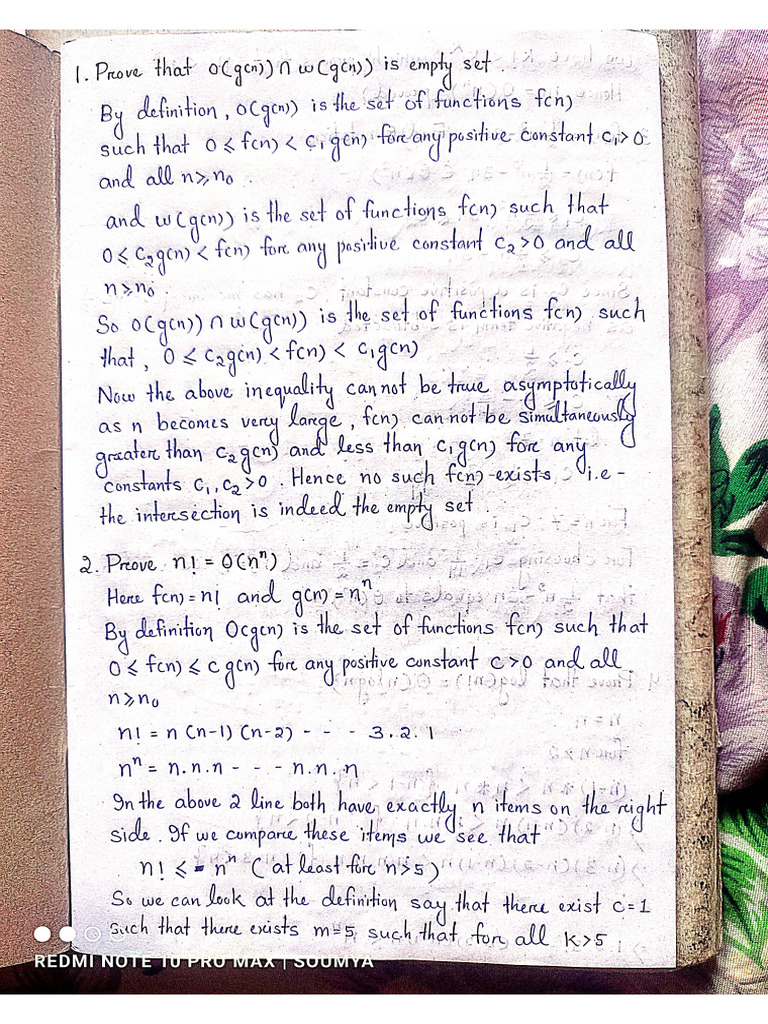 1. Prove that o(g(n)) ∩ w(g(n)) is empty set.
By definition, o(g(n)) is the set of functions f(n)
such that 0 ⩽ f(n) < c₁g(n) for any positive constant c₁>0
and all n⩾n₀.
and w(g(n)) is the set of functions f(n) such that
0 ⩽ c₂g(n) < f(n) for any positive constant c₂>0 and all
n⩾n₀.
So o(g(n)) ∩ w(g(n)) is the set of functions f(n) such
that, 0 ⩽ c₂g(n) < f(n) < c₁g(n)
Now the above inequality cannot be true asymptotically
as n becomes very large, f(n) can not be simultaneously
greater than c₂g(n) and less than c₁g(n) for any
constants c₁, c₂>0. Hence no such f(n) exists i.e-
the intersection is indeed the empty set.
2. Prove n! = O(nⁿ)
Here f(n) = n! and g(n) = nⁿ
By definition O(g(n) is the set of functions f(n) such that
0 ⩽ f(n) ⩽ c g(n) for any positive constant c>0 and all
n⩾n₀
n! = n (n-1) (n-2) - - - 3.2.1
nⁿ = n.n.n - - - n.n.n
In the above 2 line both have exactly n items on the right
side. If we compare these items we see that
n! ⩽ nⁿ (at least for n>5)
So we can look at the definition say that there exist c=1
such that there exists m=5 such that for all k>5
REDMI NOTE 10 PRO MAX | SOUMYA